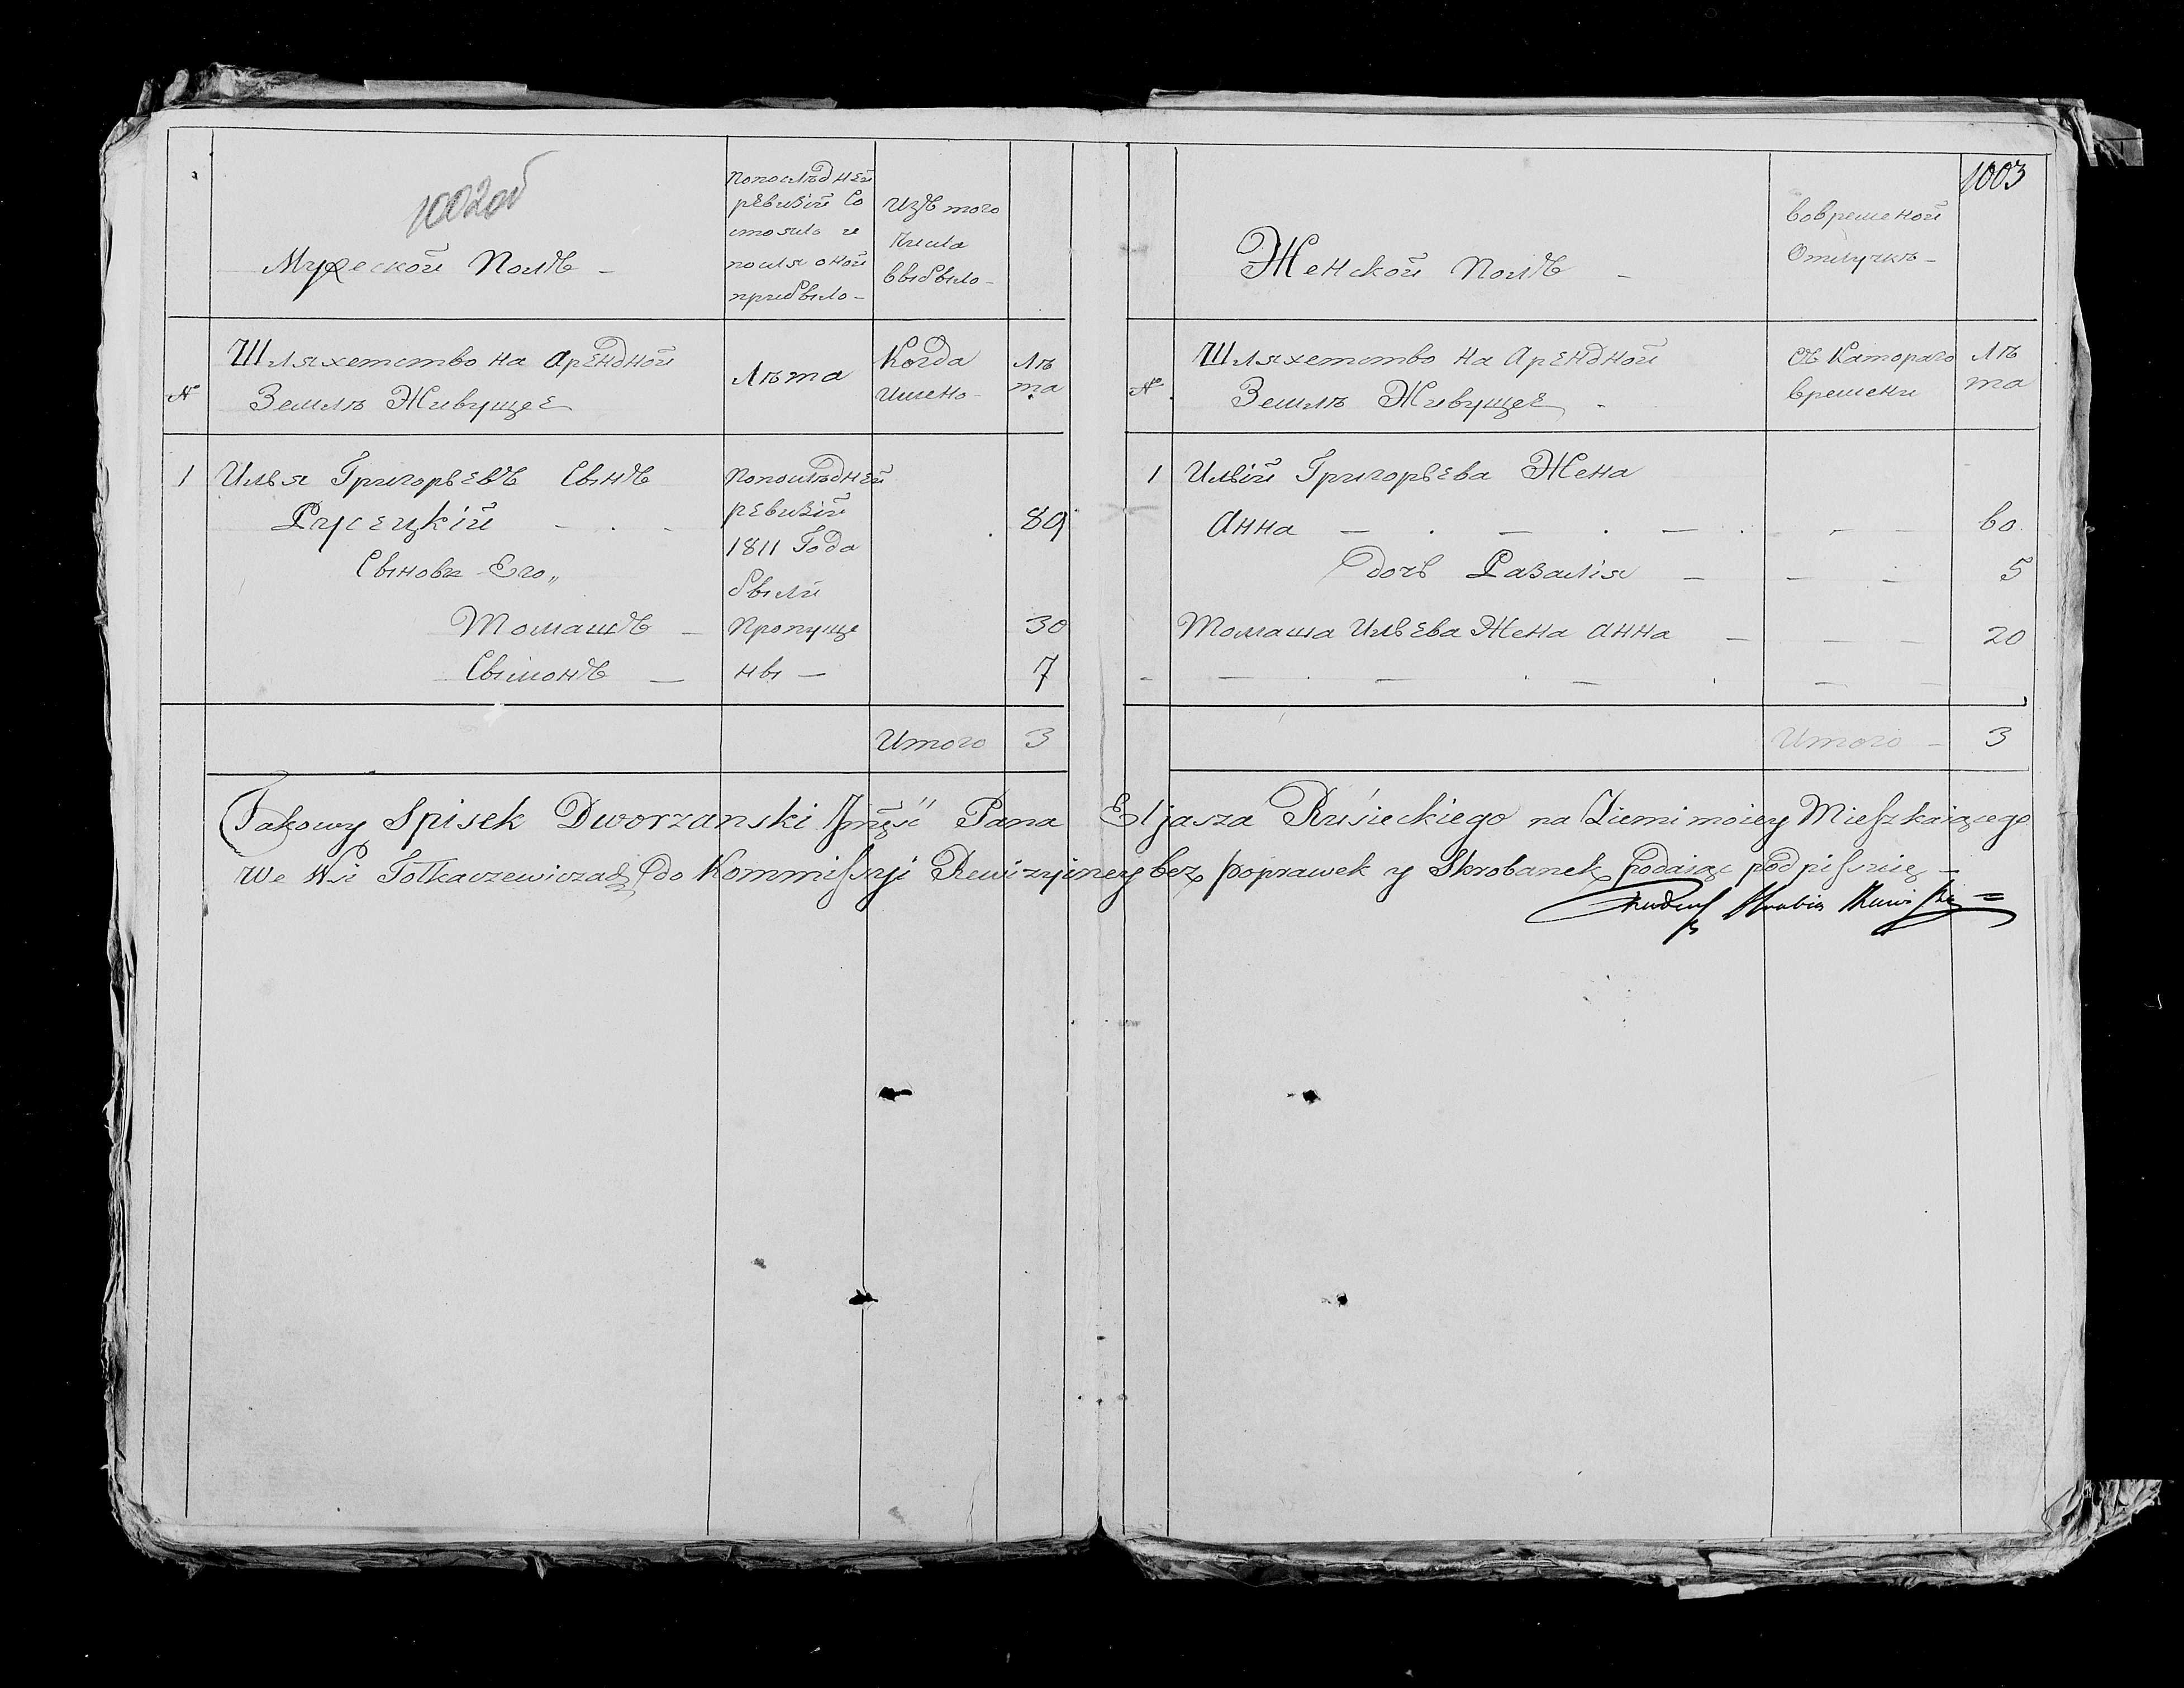 1002об
Мужеской Полъ –
Попослѣдней
рѣвизіи Со
стояло и
послѣ оной
прибыло –
Изъ того
Числа
выбыло –
№
Шляхетство на Арендной
Землѣ Живущее
Лѣта
Когда
имено
Лѣ
та
1 Илья Григорьевъ Сынъ
Русецкій
Попослѣдней
ревизіи
1811 Года
были
Пропуще
ны –
89
Сыновья Его„
Томашъ – 30
Сымонъ – 7
Итого 3
1003
Женской Полъ –
вовременой
Отлучкѣ –
№
Шляхетство на Арендной
Землѣ Живущее
Съ Катораго
времени
Лѣ
та
1 Ильіи Григорьева Жена
Анна – 60
дочь Разалія – 5
Томаша Ильева Жена Анна – 20
Итого – 3
Takowy Spisek Dworzanski Jmść Pana Eljasza Rusieckiego na Ziemi moiey Mieszkaiącego
we Wsi Tołkaczewiczach do Kommissyi Rewizyiney bez poprawek y Skrobanek podaiąc podpisuię –
Hrabia